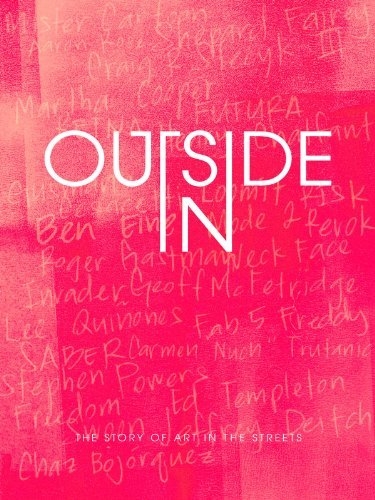 Mister Cartoon Shepard Fairey
Aaron Rose
Craig R. Stecyk III
Martha Cooper
FUTURA
Henry Chalfant
OUTSIDE
IN
Gus
Loomit Ask
Ben Eine Mode 2 Revok
Roger Gastman Neck Face
Invader Geoff McFetridge
Lee Quinones Fab 5 Freddy
SABER Carmen "Nuch" Trutanic
Stephen Powers
Freedom Ed Templeton
Swoon Jeffrey Deitch
THE STORY OF ART IN THE STREETS
Chaz Bojórquez